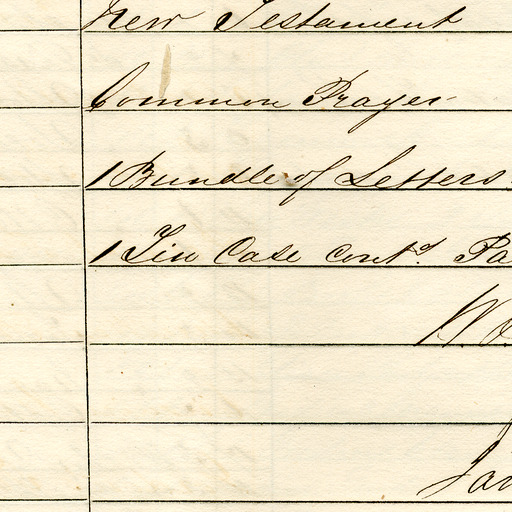 New Testament
Common Prayer
1 Bundle of Letters
1 Tin Case cont.d Pa
W.
Jan